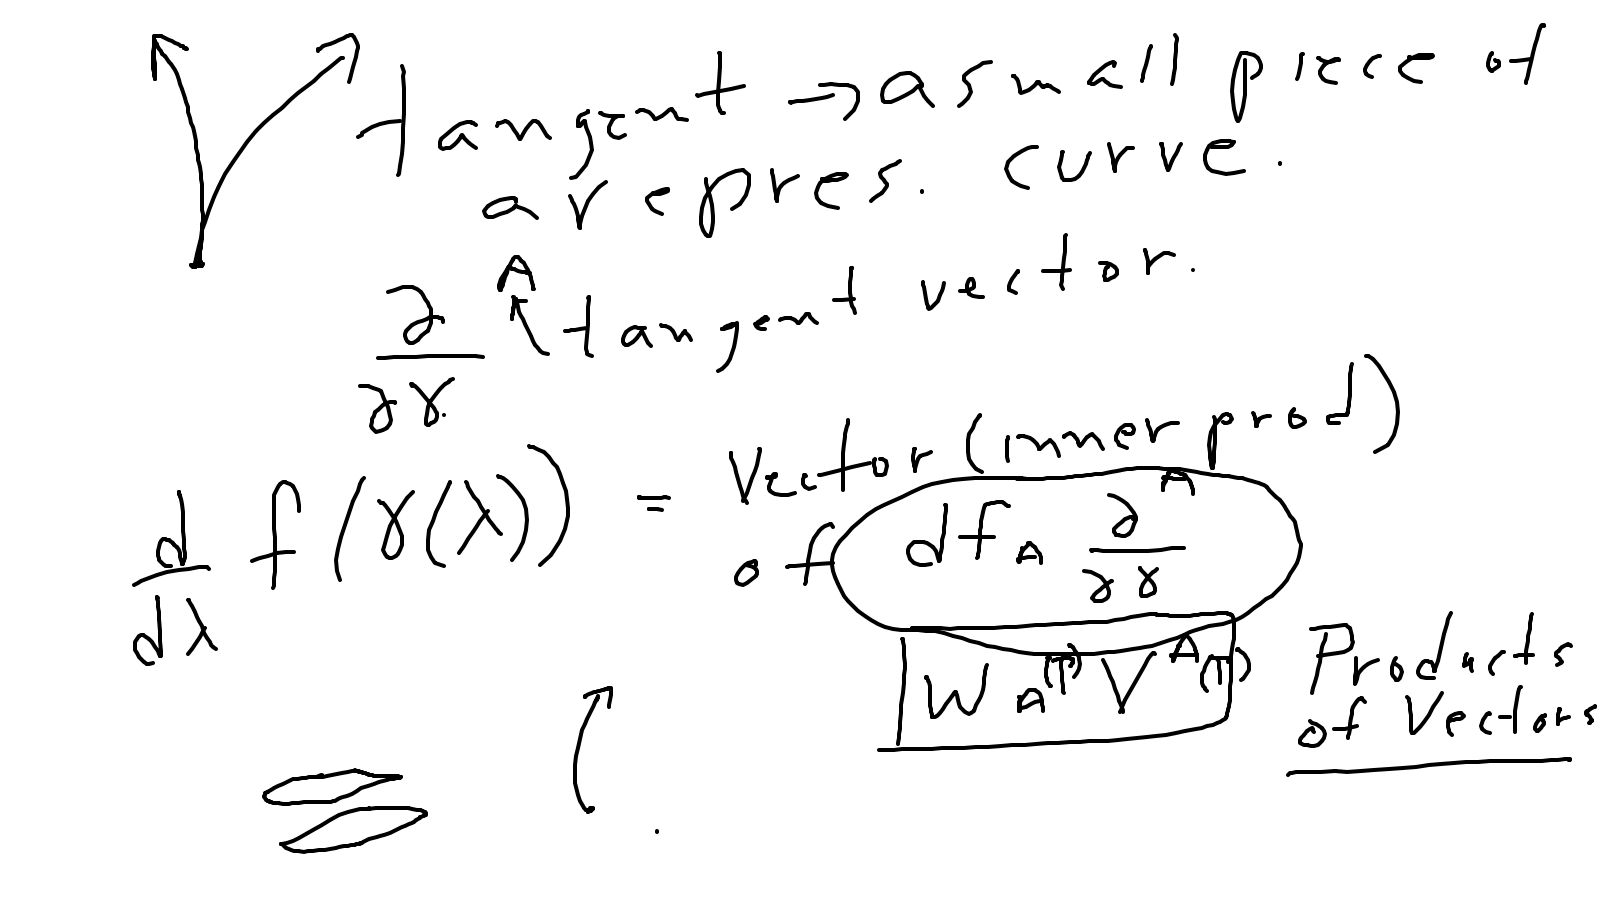 tangent → a small piece of
a repres. curve.
∂/∂γ ^A ↖ tangent vector.
d/dλ f(γ(λ)) = Vector (inner prod)
of df_A ∂/∂γ ^A
W_A(T) V^A(T)
Products
of Vectors